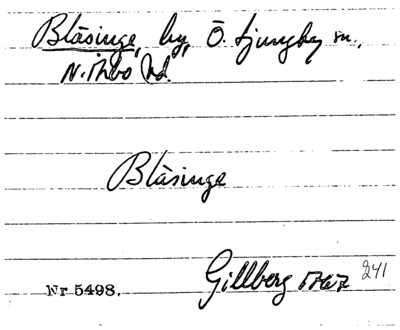 Blåsinge, by, Ö. Ljungby sn.,
N. Åsbo hd.
Blåsinge
Nr 5498. Gillberg 1767 241